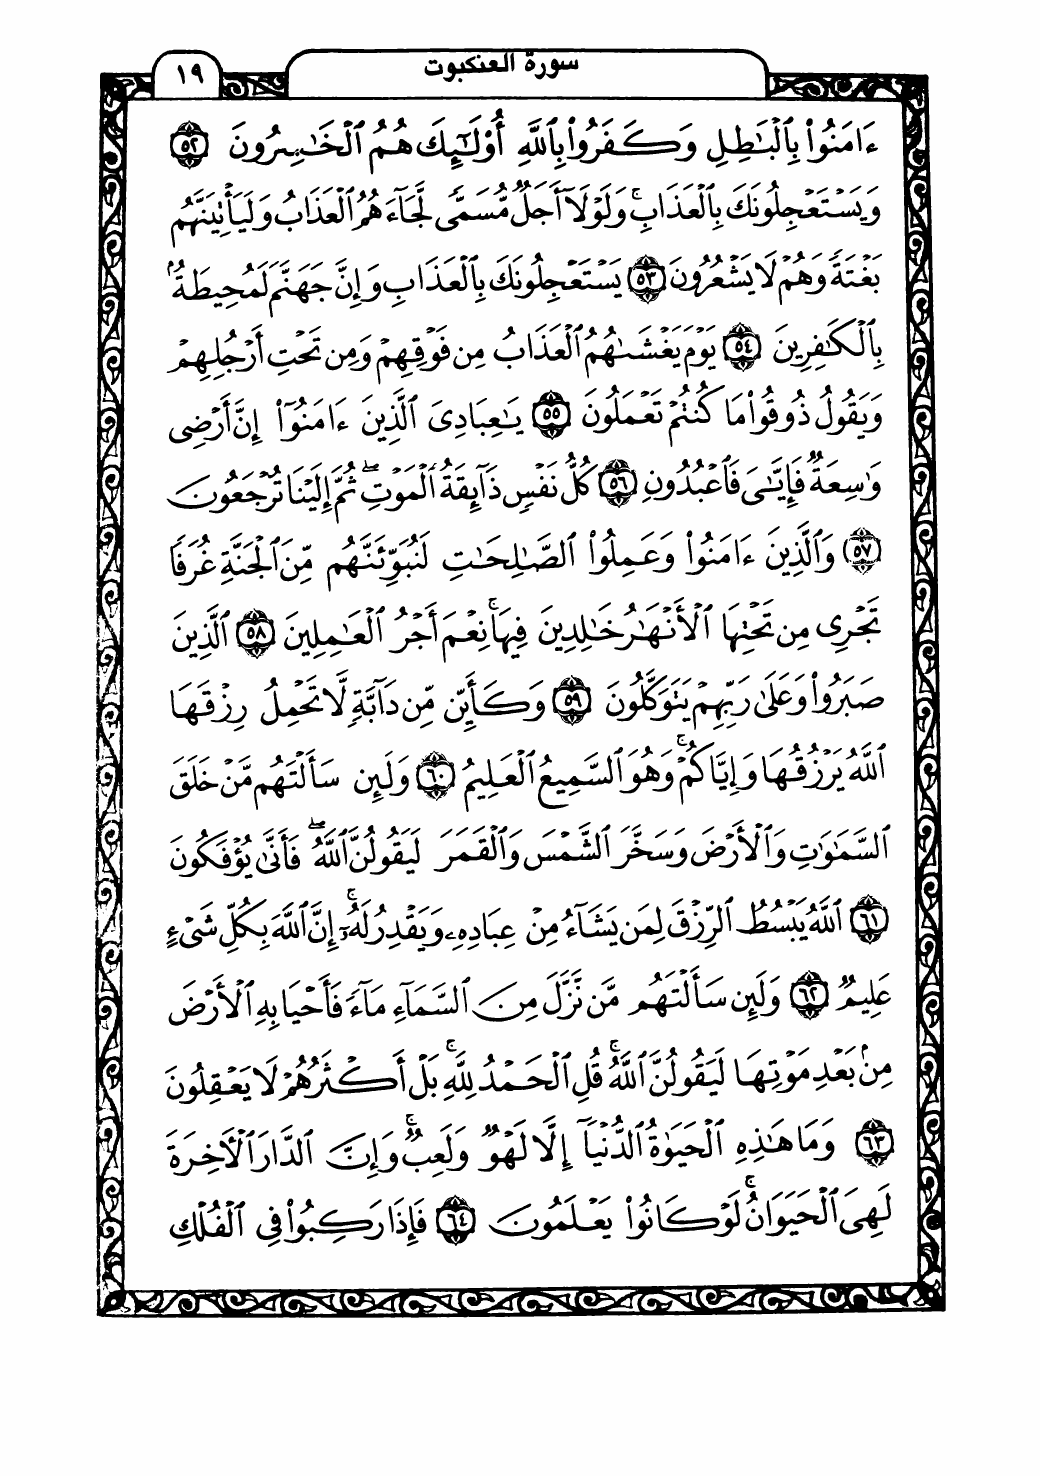 سورة العنكبوت
١٩
ءَامَنُوا۟ بِٱلْبَٰطِلِ وَكَفَرُوا۟ بِٱللَّهِ أُو۟لَٰٓئِكَ هُمُ ٱلْخَٰسِرُونَ ٥٢
وَيَسْتَعْجِلُونَكَ بِٱلْعَذَابِ ۚ وَلَوْلَآ أَجَلٌ مُّسَمًّى لَّجَآءَهُمُ ٱلْعَذَابُ وَلَيَأْتِيَنَّهُم
بَغْتَةً وَهُمْ لَا يَشْعُرُونَ ٥٣ يَسْتَعْجِلُونَكَ بِٱلْعَذَابِ وَإِنَّ جَهَنَّمَ لَمُحِيطَةٌۢ
بِٱلْكَٰفِرِينَ ٥٤ يَوْمَ يَغْشَىٰهُمُ ٱلْعَذَابُ مِن فَوْقِهِمْ وَمِن تَحْتِ أَرْجُلِهِمْ
وَيَقُولُ ذُوقُوا۟ مَا كُنتُمْ تَعْمَلُونَ ٥٥ يَٰعِبَادِىَ ٱلَّذِينَ ءَامَنُوٓا۟ إِنَّ أَرْضِى
وَٰسِعَةٌ فَإِيَّٰىَ فَٱعْبُدُونِ ٥٦ كُلُّ نَفْسٍ ذَآئِقَةُ ٱلْمَوْتِ ۖ ثُمَّ إِلَيْنَا تُرْجَعُونَ
٥٧ وَٱلَّذِينَ ءَامَنُوا۟ وَعَمِلُوا۟ ٱلصَّٰلِحَٰتِ لَنُبَوِّئَنَّهُم مِّنَ ٱلْجَنَّةِ غُرَفًا
تَجْرِى مِن تَحْتِهَا ٱلْأَنْهَٰرُ خَٰلِدِينَ فِيهَا ۚ نِعْمَ أَجْرُ ٱلْعَٰمِلِينَ ٥٨ ٱلَّذِينَ
صَبَرُوا۟ وَعَلَىٰ رَبِّهِمْ يَتَوَكَّلُونَ ٥٩ وَكَأَيِّن مِّن دَآبَّةٍ لَّا تَحْمِلُ رِزْقَهَا
ٱللَّهُ يَرْزُقُهَا وَإِيَّاكُمْ ۚ وَهُوَ ٱلسَّمِيعُ ٱلْعَلِيمُ ٦٠ وَلَئِن سَأَلْتَهُم مَّنْ خَلَقَ
ٱلسَّمَٰوَٰتِ وَٱلْأَرْضَ وَسَخَّرَ ٱلشَّمْسَ وَٱلْقَمَرَ لَيَقُولُنَّ ٱللَّهُ ۖ فَأَنَّىٰ يُؤْفَكُونَ
٦١ ٱللَّهُ يَبْسُطُ ٱلرِّزْقَ لِمَن يَشَآءُ مِنْ عِبَادِهِۦ وَيَقْدِرُ لَهُۥٓ ۚ إِنَّ ٱللَّهَ بِكُلِّ شَىْءٍ
عَلِيمٌ ٦٢ وَلَئِن سَأَلْتَهُم مَّن نَّزَّلَ مِنَ ٱلسَّمَآءِ مَآءً فَأَحْيَا بِهِ ٱلْأَرْضَ
مِنۢ بَعْدِ مَوْتِهَا لَيَقُولُنَّ ٱللَّهُ ۚ قُلِ ٱلْحَمْدُ لِلَّهِ ۚ بَلْ أَكْثَرُهُمْ لَا يَعْقِلُونَ
٦٣ وَمَا هَٰذِهِ ٱلْحَيَوٰةُ ٱلدُّنْيَآ إِلَّا لَهْوٌ وَلَعِبٌ ۚ وَإِنَّ ٱلدَّارَ ٱلْـَٔاخِرَةَ
لَهِىَ ٱلْحَيَوَانُ ۚ لَوْ كَانُوا۟ يَعْلَمُونَ ٦٤ فَإِذَا رَكِبُوا۟ فِى ٱلْفُلْكِ